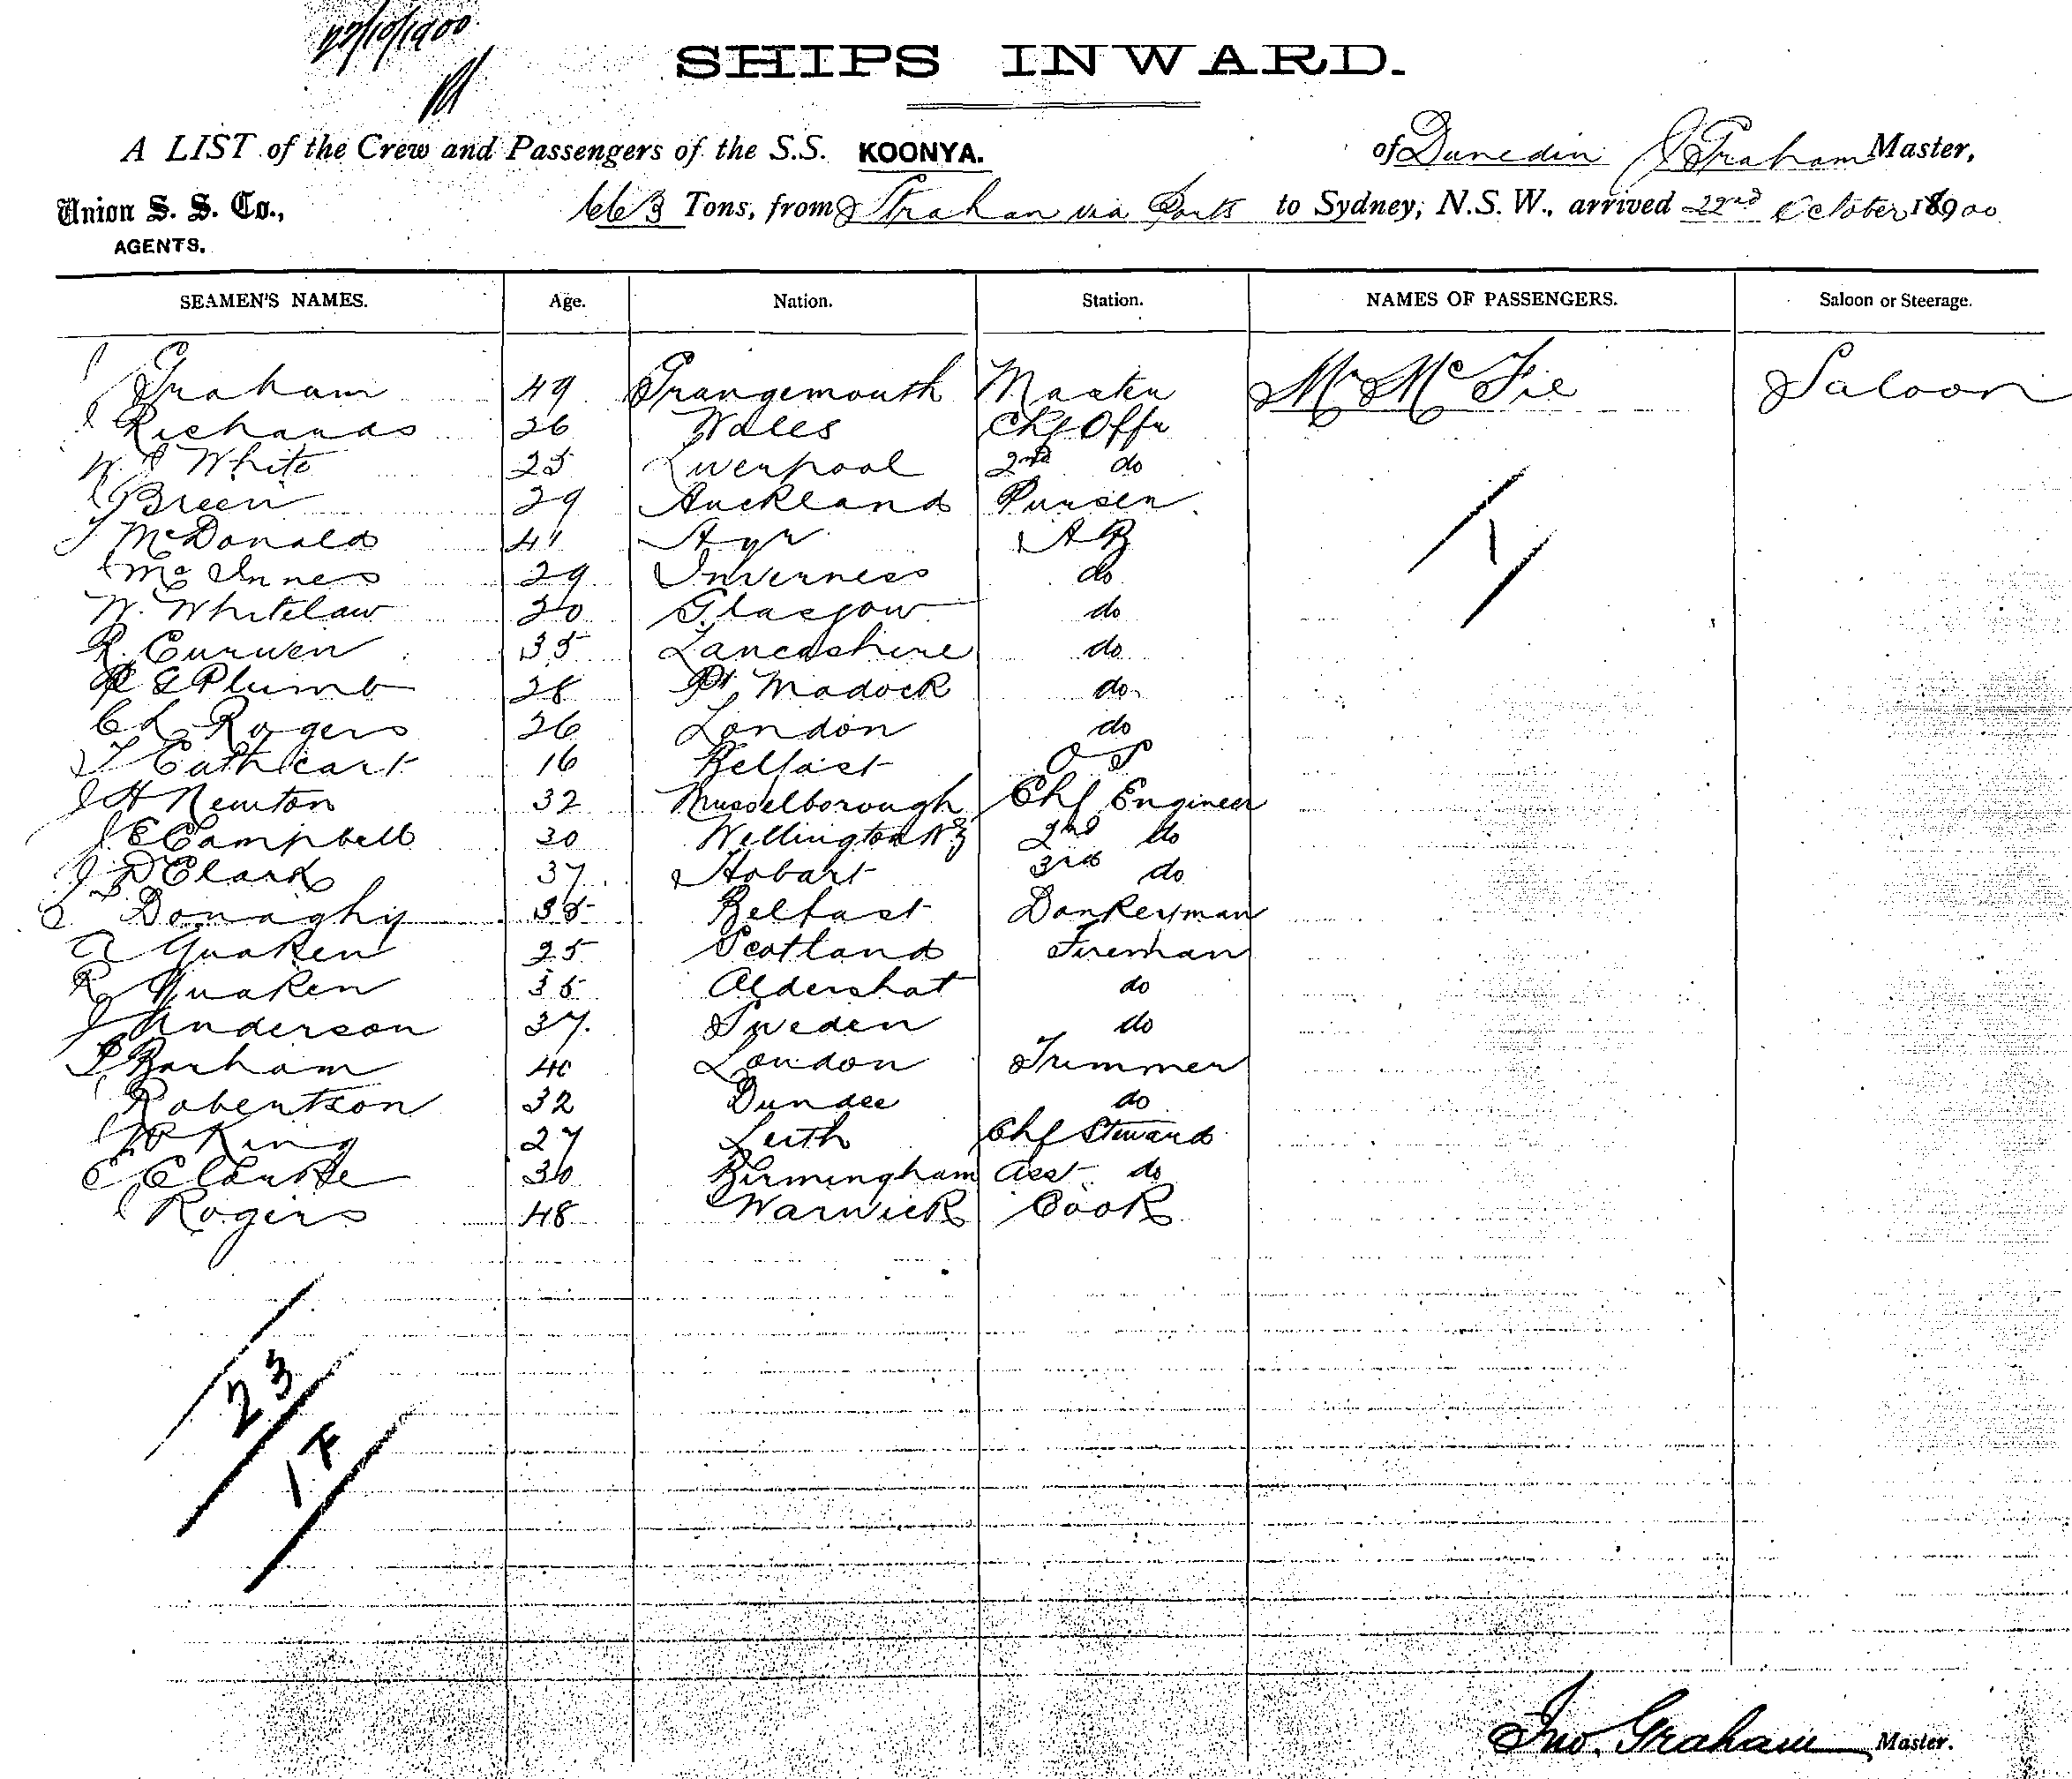 22/10/1900
SHIPS INWARD.
A LIST of the Crew and Passengers of the S.S. KOONYA. of Dunedin J Graham Master,
Union S. S. Co., 663 Tons, from Strahan via Ports to Sydney, N.S.W., arrived 22nd October 18900
AGENTS.
SEAMEN'S NAMES. Age. Nation. Station. NAMES OF PASSENGERS. Saloon or Steerage.
J Graham 49 Grangemouth Master Mr McFie Saloon
J Richards 26 Wales Chf Offr
W. J White 25 Liverpool 2nd do
J Breen 29 Auckland Purser
J McDonald 41 Ayr A B
J McInnes 29 Inverness do
W. Whitelaw 20 Glasgow do
R. Curwen 35 Lancashire do
Plumb 28 Pt Madock do
C L Rogers 26 London do
T Cathcart 16 Belfast O S
J H Newton 32 Musselborough Chf Engineer
J E Campbell 30 Wellington NZ 2nd do
J D Clark 37 Hobart 3rd do
Donaghy 35 Belfast Donkeyman
A Quaken 25 Scotland Fireman
R Quaken 35 Aldershot do
J Anderson 37 Sweden do
Barham 40 London Trimmer
J Robertson 32 Dundee do
King 27 Leith Chf Steward
C Clarke 30 Birmingham Asst do
J Rogers 48 Warwick Cook
1
23
1 F
Jno. Graham, Master.